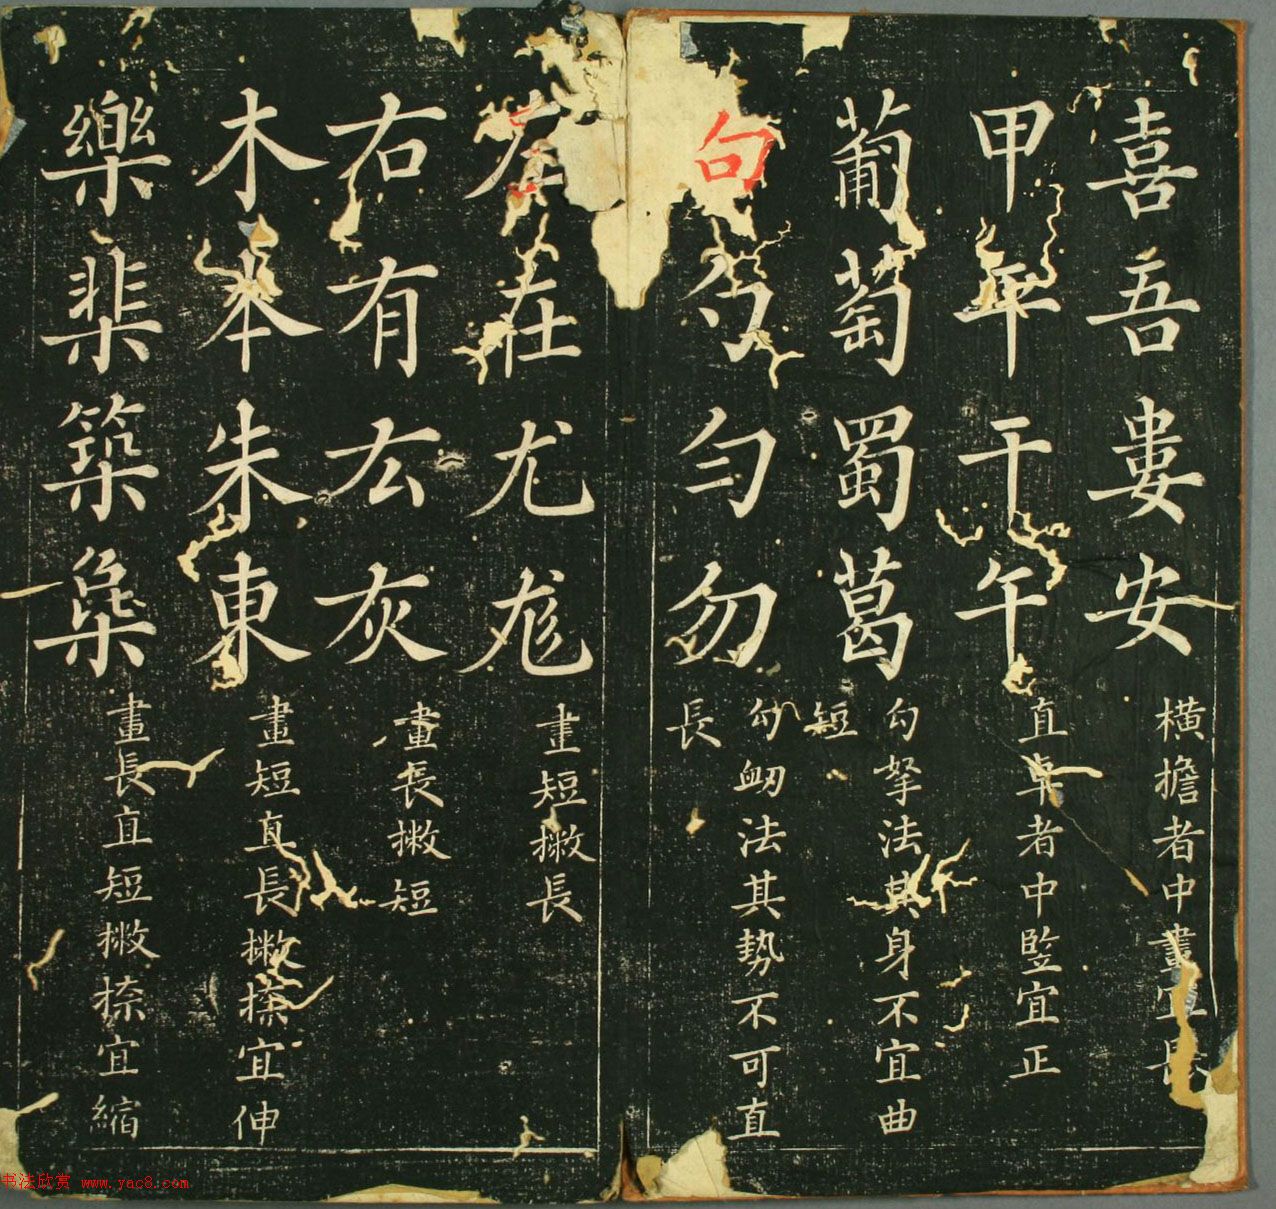 喜吾婁安
橫擔者中畫宜長
甲年干午
直卓者中豎宜正
葡萄蜀葛
勾拏法其身不宜曲短
句勺勻勿
勾衂法其勢不可直長
左在尤尨
畫短撇長
右有厷灰
畫長撇短
木本朱東
畫短直長撇捺宜伸
樂棐築梟
畫長直短撇捺宜縮
书法欣赏 www.yac8.com